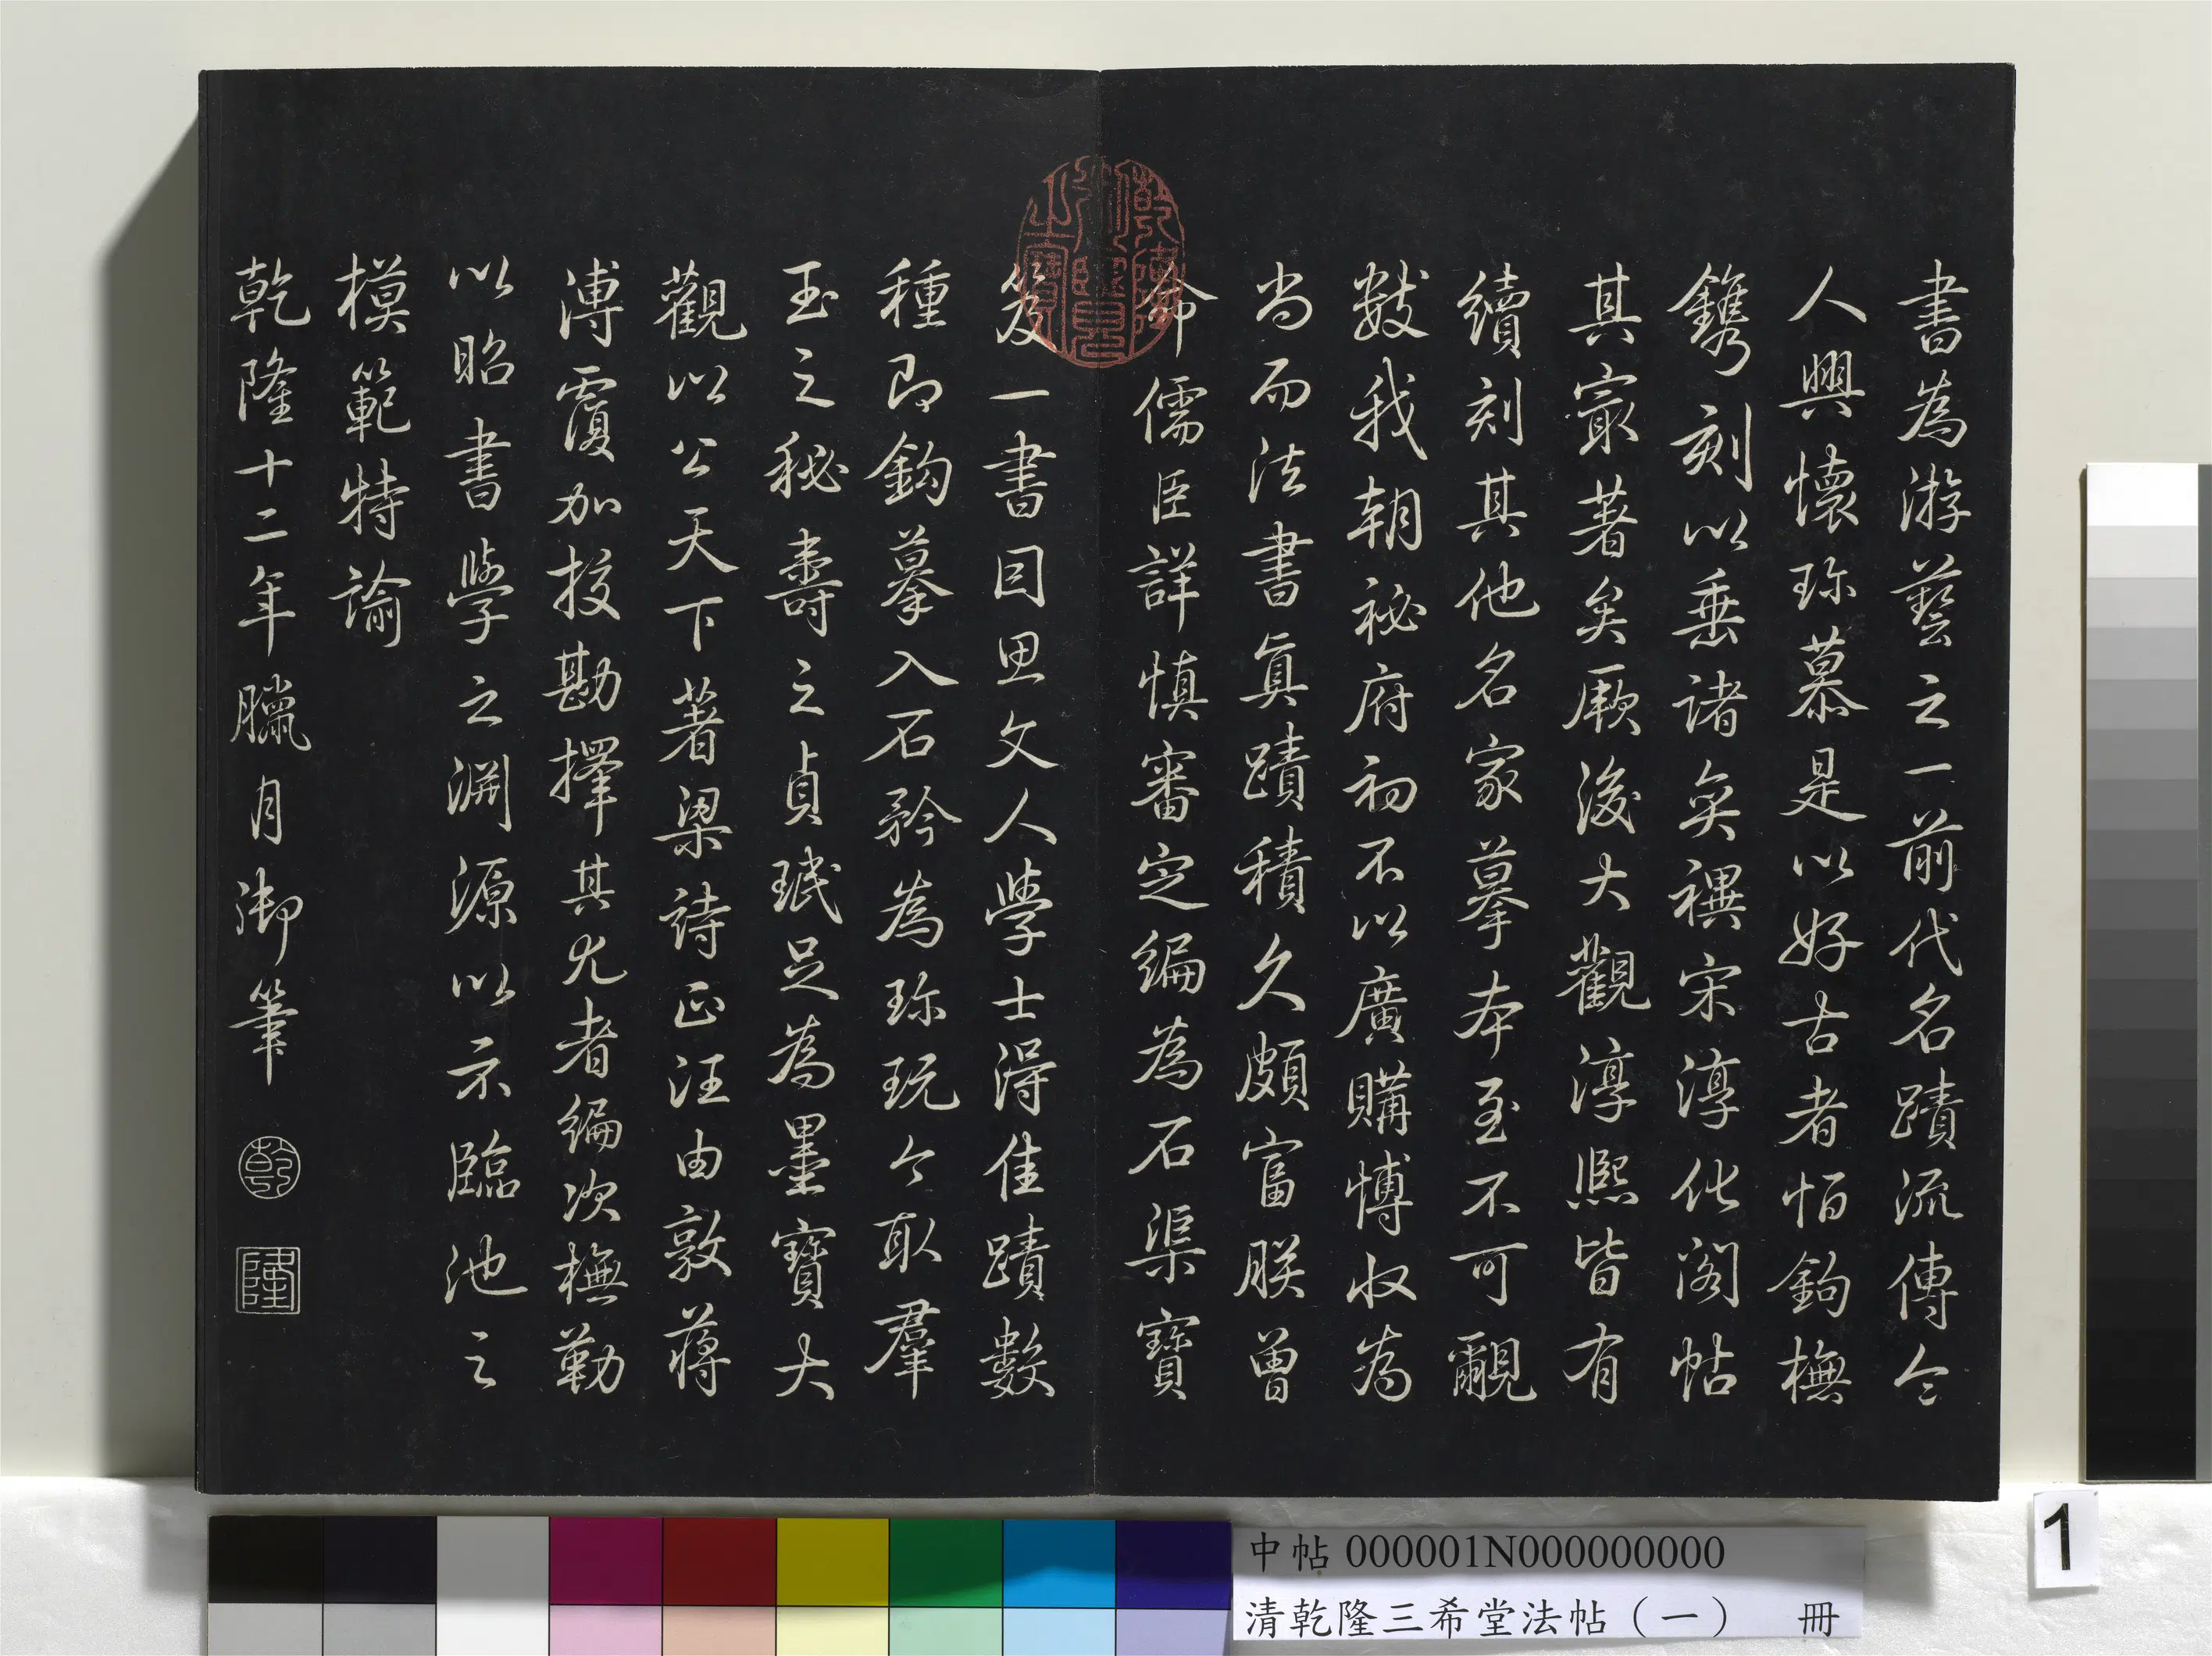 書為游藝之一前代名蹟流傳令
人興懷珎慕是以好古者恒鉤橅
鐫刻以垂諸奕禩宋淳化閣帖
其寂著矣厥後大觀淳熙皆有
續刻其他名家摹本至不可覼
數我朝祕府初不以廣購博收為
尚而法書真蹟積久頗富朕曾
命儒臣詳慎審定編為石渠寶
笈一書因思文人學士得佳蹟數
種即鉤摹入石矜為珎玩今取羣
玉之秘壽之貞珉足為墨寶大
觀以公天下著梁詩正汪由敦蔣
溥覆加挍勘擇其尤者編次橅勒
以昭書學之淵源以示臨池之
模範特諭
乾隆十二年臘月御筆
乾
隆
中帖 000001N000000000
清乾隆三希堂法帖（一） 冊
1